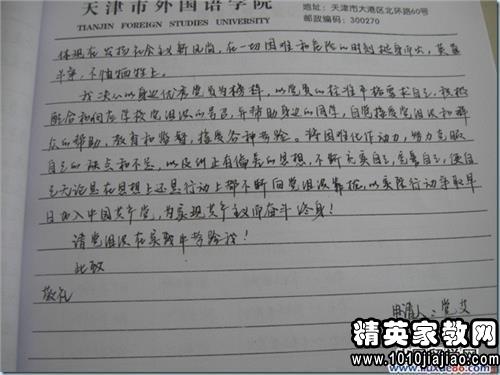 天津市外国语学院
TIANJIN FOREIGN STUDIES UNIVERSITY
地址:天津市大港区北环路60号
邮政编码:300270
体现在发扬社会主义新风尚,在一切困难和危险的时刻挺身而出,英勇
斗争,不怕牺牲上。
我决心以身边优秀党员为榜样,以党员的标准严格要求自己,积极
配合和向在学校党组织的号召,并帮助身边的同学,自觉接受党组织和群
众的帮助,教育和监督,接受各种考验。将困难化作动力,努力克服
自己的缺点和不足,以及纠正有偏差的思想,不断充实自己,完善自己,使自
己无论是在思想上还是行动上都不断向党组织靠拢,以实际行动争取早
日加入中国共产党,为实现共产主义而奋斗终身!
请党组织在实践中考验我!
此致
敬礼
申请人:
精英家教网
www.1010jiajiao.com